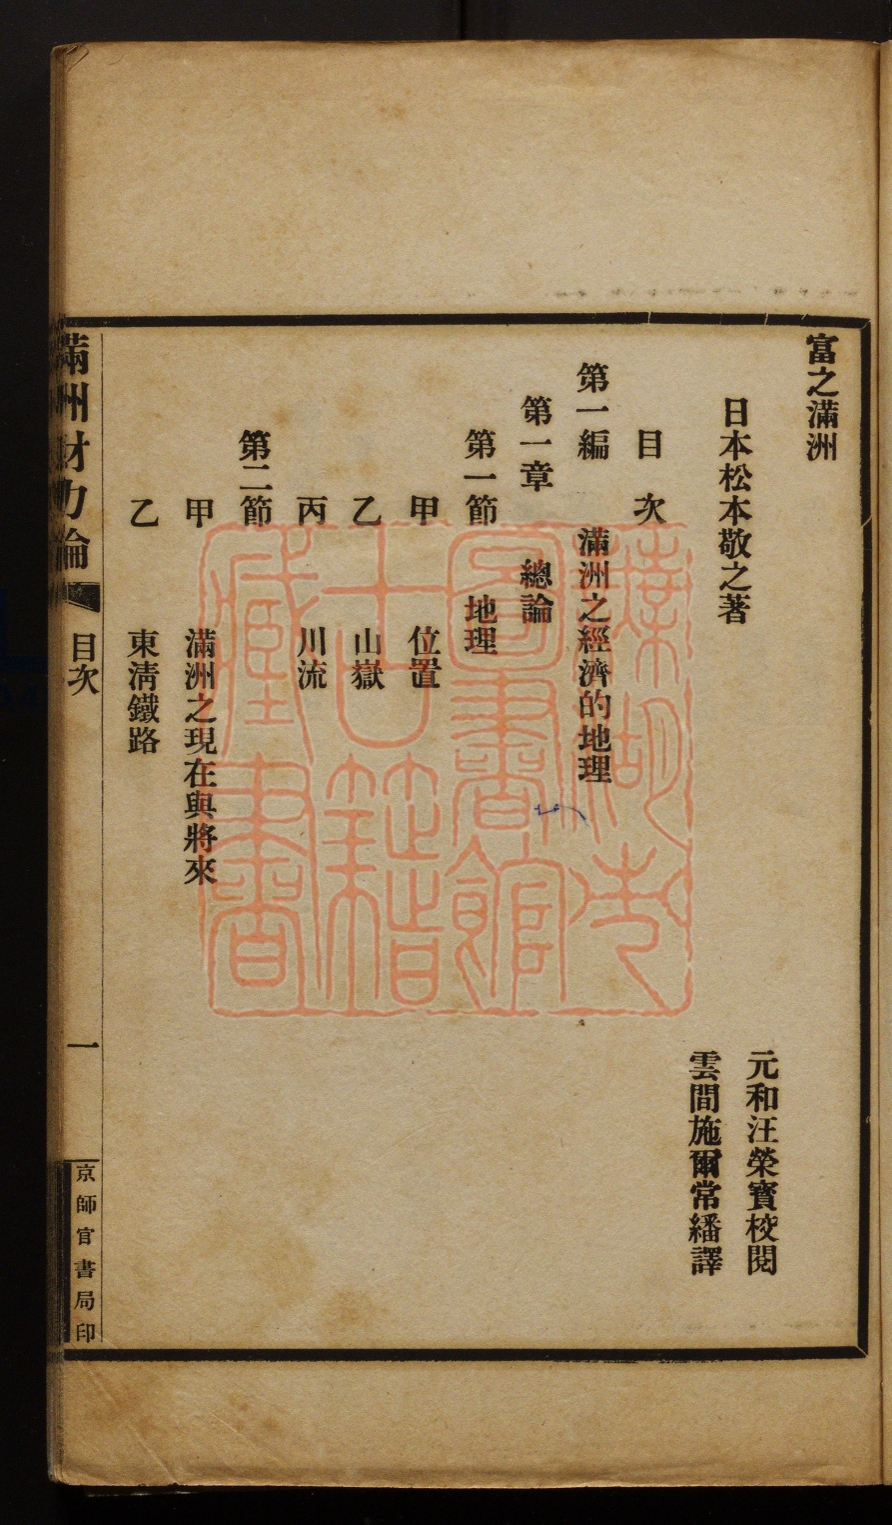 富之滿洲
元和汪榮寶校閱
日本松本敬之著
雲間施爾常繙譯
目次
第一編 滿洲之經濟的地理
第一章 總論
第一節 地理
甲 位置
乙 山嶽
丙 川流
第二節
甲 滿洲之現在與將來
乙 東淸鐵路
滿州財力論 目次 一 京師官書局印
蕪湖市圖書館古籍藏書